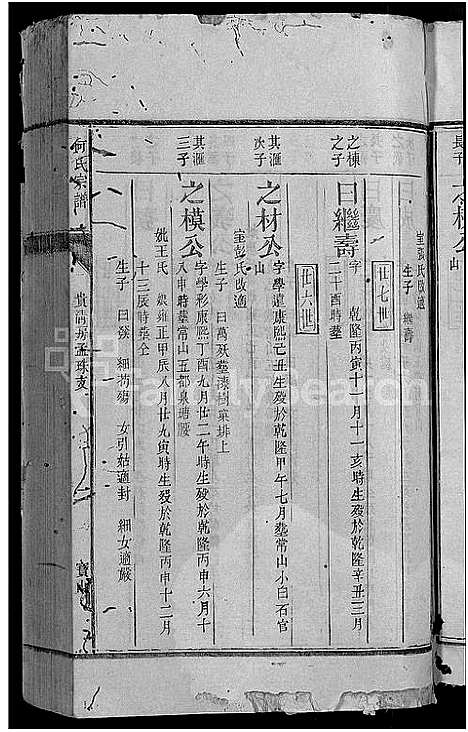 長子
室彭氏改適
生子
廿七世
之棟之子
曰繼壽
字 乾隆丙寅十一月十一亥時生歿於乾隆辛丑三月
二十酉時葬
廿六世
其滙次子
之材公
字學遠康熙己丑生歿於乾隆甲午七月葬常山小白石官
山
室彭氏改適
生子 曰萬 歿葬漆樹 排上
其滙三子
之模公
字學彩康熙丁酉九月廿二午時生歿於乾隆丙申六月十
八申時葬常山五都泉塘
妣王氏 雍正甲辰八月廿九寅時生歿於乾隆丙申十二月
十三辰時葬仝
生子 曰 細 殤 女引姑適封 細女適嚴
何氏宗譜
孟珠支
FamilySearch